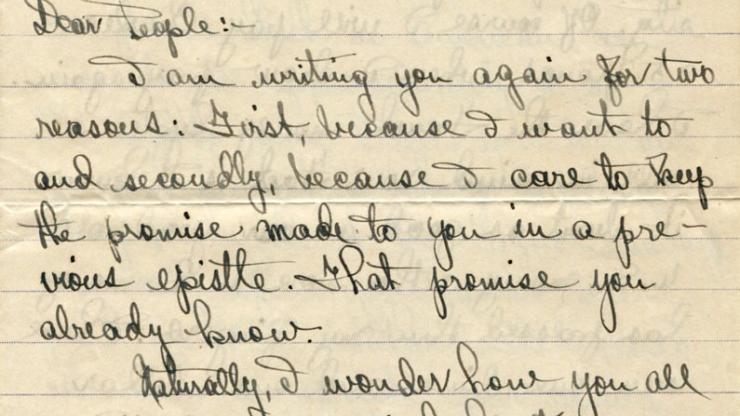 Dear People:-
I am writing you again for two
reasons: First, because I want to
and secondly, because I care to keep
the promise made to you in a pre-
vious epistle. That promise you
already know.
Naturally, I wonder how you all